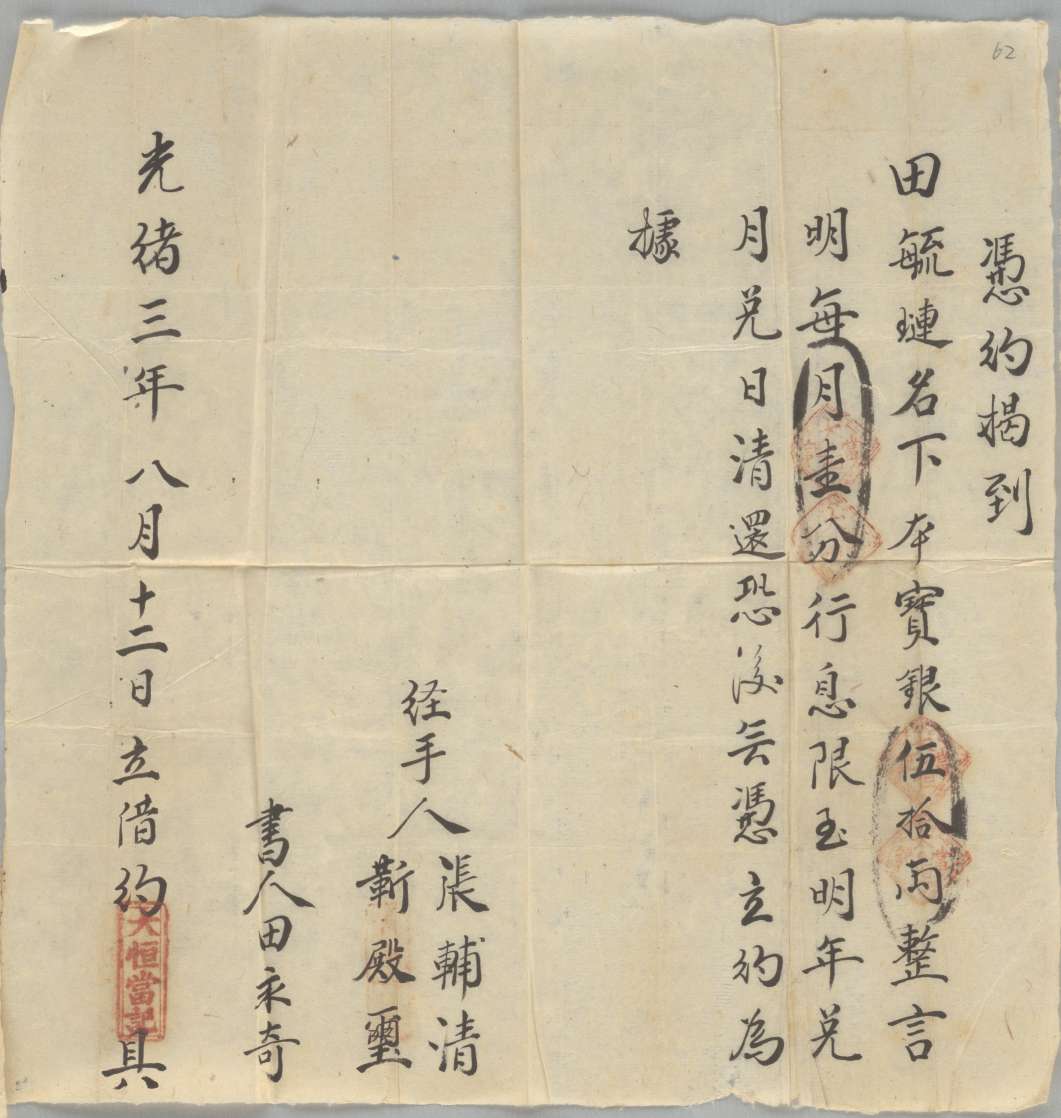 憑約揭到
田毓璉名下本寶銀伍拾両整言
明每月壹分行息限至明年兌
月兌日清還恐後无憑立約為
據
経手人張輔清
靳殿璽
書人田永奇
光緒三年八月十二日立借約具
大恒當記
62